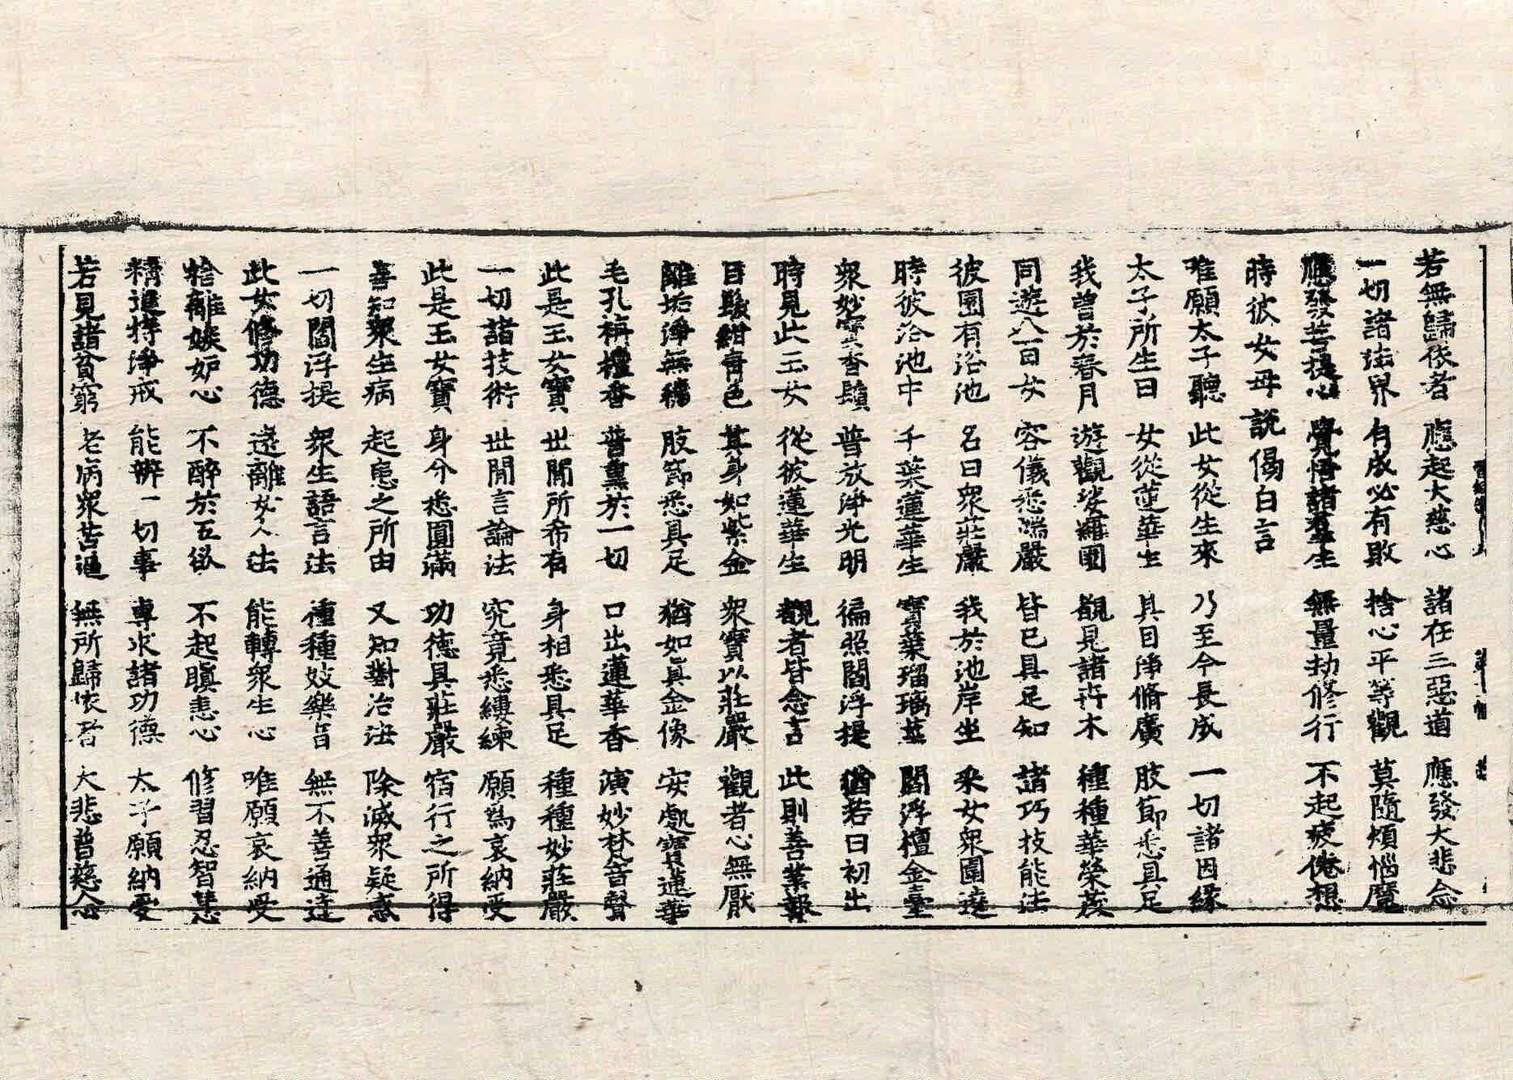 若無歸依者 應起大慈心 諸在三惡道 應發大悲念
一切諸法界 有成必有敗 捨心平等觀 莫隨煩惱魔
應發菩提心 覺悟諸羣生 無量劫修行 不起疲倦想
時彼女母說偈白言
唯願太子聽 此女從生來 乃至今長成 一切諸因緣
太子所生日 女從蓮華生 其目淨脩廣 肢節悉具足
我曾於春月 遊觀娑羅園 覩見諸卉木 種種華榮茂
同遊八百女 容儀悉端嚴 皆已具足知 諸巧技能法
彼園有浴池 名曰衆莊嚴 我於池岸坐 釆女衆圍遶
時彼浴池中 千葉蓮華生 寶葉瑠璃莖 閻浮檀金臺
衆妙寶香鬚 普放淨光明 徧照閻浮提 猶若日初出
時見此玉女 從彼蓮華生 觀者皆念言 此則善業報
目髮紺青色 其身如紫金 衆寶以莊嚴 觀者心無厭
離垢淨無穢 肢節悉具足 猶如眞金像 安處寶蓮華
毛孔栴檀香 普熏於一切 口出蓮華香 演妙梵音聲
此是玉女寶 世間所希有 身相悉具足 種種妙莊嚴
一切諸技術 世間言論法 究竟悉纓練 願爲哀納受
此是玉女寶 身分悉圓滿 功德具莊嚴 宿行之所得
善知衆生病 起患之所由 又知對治法 除滅衆疑惑
一切閻浮提 衆生語言法 種種妓樂音 無不善通達
此女修功德 遠離女人法 能轉衆生心 唯願哀納受
捨離嫉妒心 不醉於五欲 不起瞋恚心 修習忍智慧
精進持淨戒 能辨一切事 專求諸功德 太子願納受
若見諸貧窮 老病衆苦逼 無所歸依者 大悲普慈心